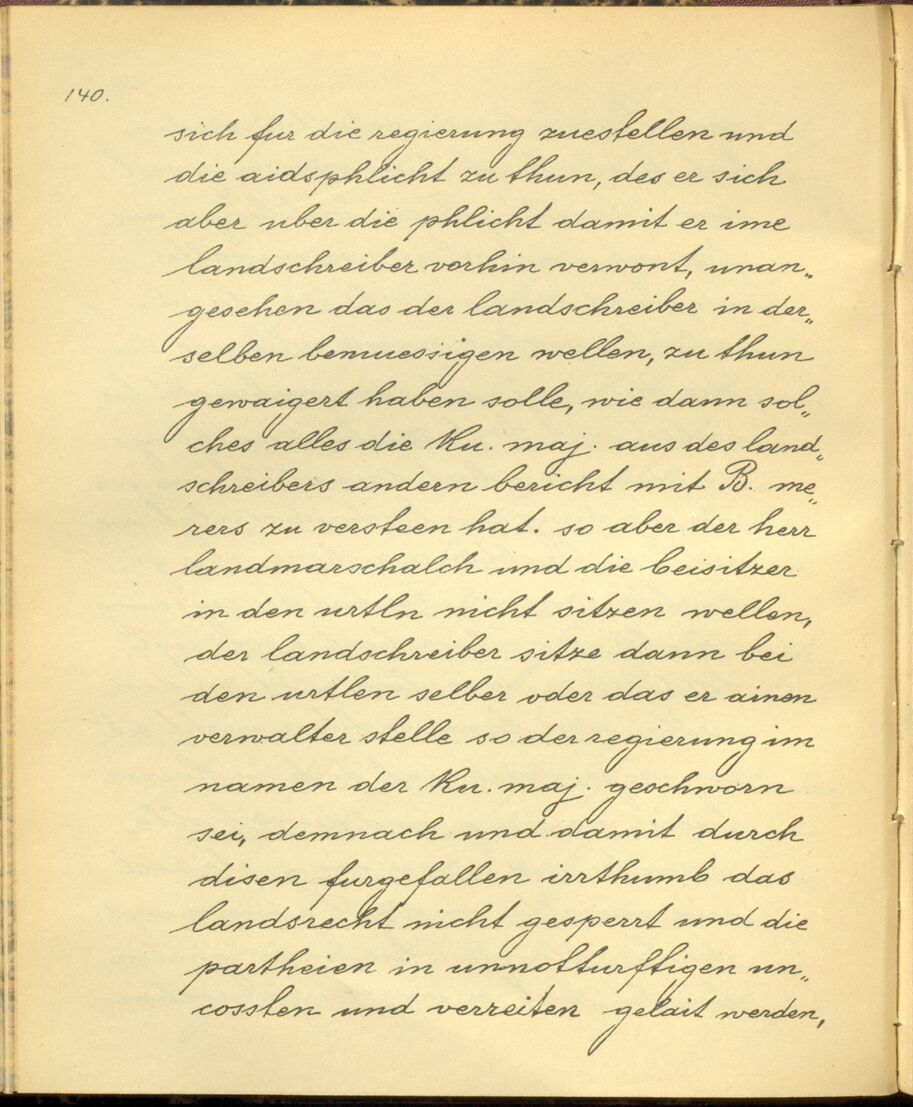 140.
sich fur die regierung zuestellen und
die aidsphlicht zu thun, des er sich
aber uber die phlicht damit er ime
landschreiber vorhin verwont, unan„
gesehen das der landschreiber in der„
selben bemuessigen wellen, zu thun
gewaigert haben solle, wie dann sol„
ches alles die Ku. maj. aus des land„
schreibers andern bericht mit B. me„
rers zu versteen hat. so aber der herr
landmarschalch und die beisitzer
in den urtln nicht sitzen wellen,
der landschreiber sitze dann bei
den urtlen selber oder das er ainen
verwalter stelle so der regierung im
namen der Ku. maj. geschworn
sei, demnach und damit durch
disen furgefallen irrthumb das
landsrecht nicht gesperrt und die
partheien in unnotturftigen un„
cossten und verreiten gelait werden,